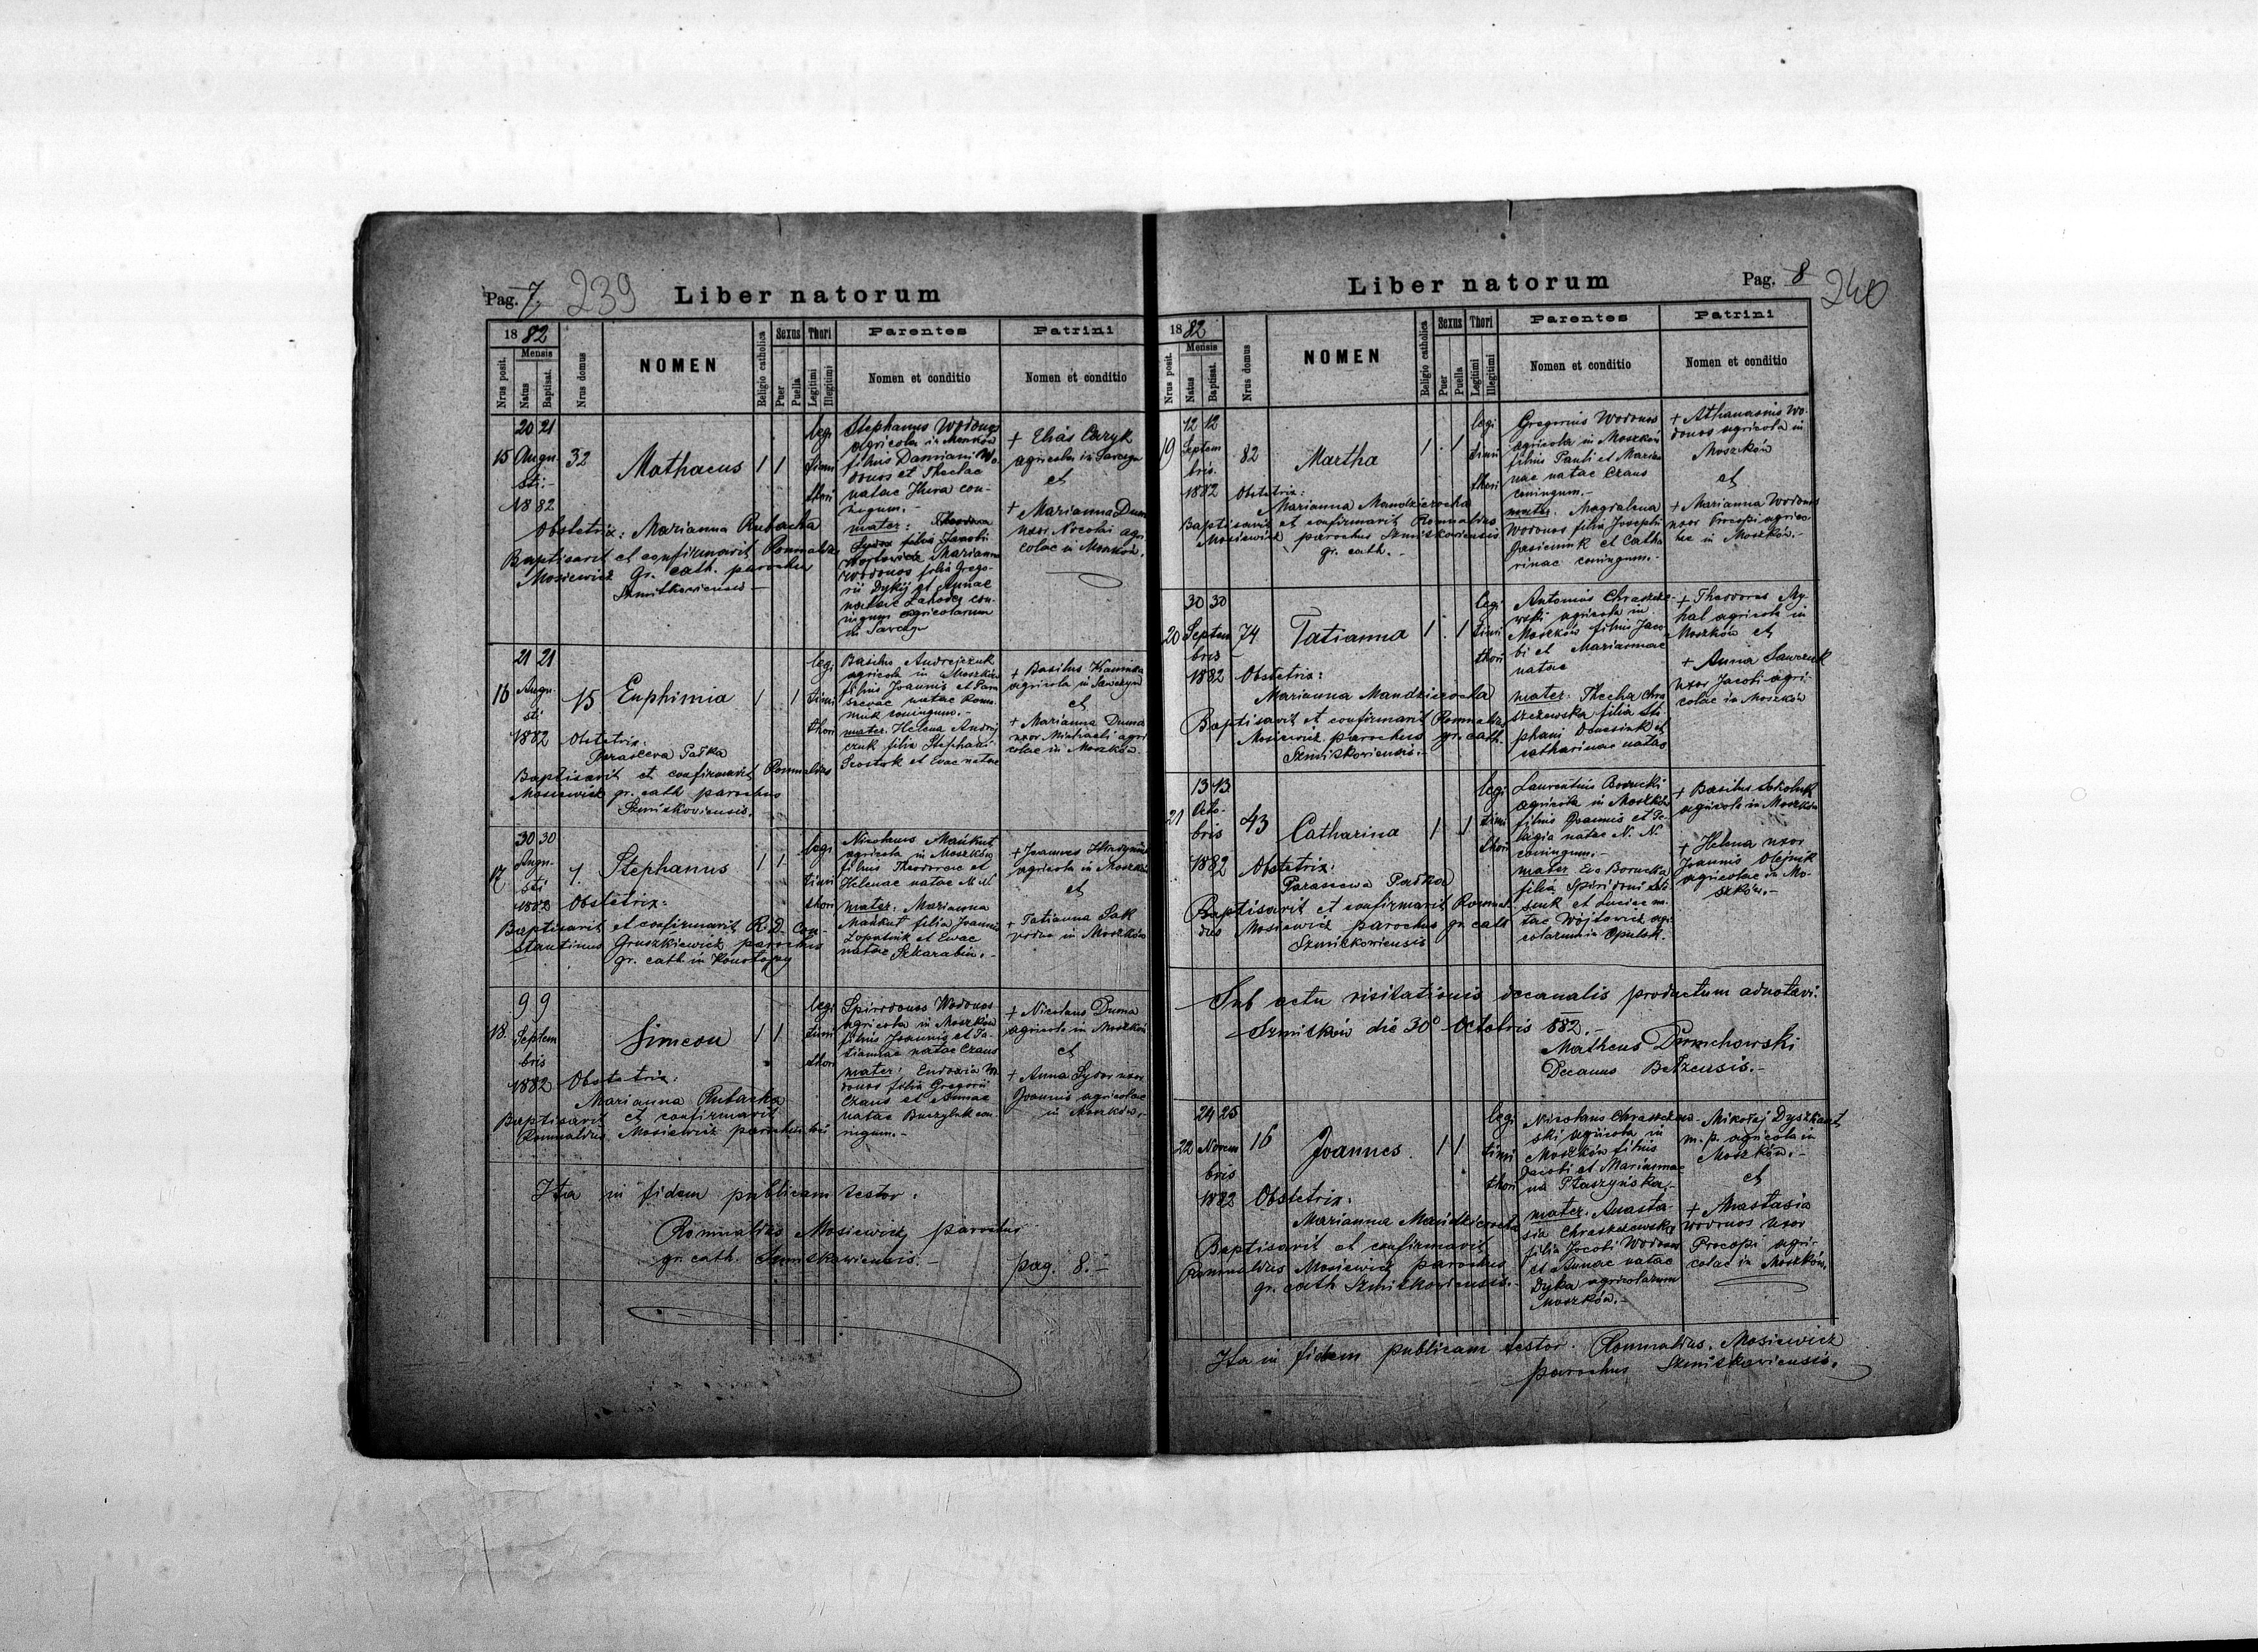 Pag. 7. 239 Liber natorum
1882
Nrus posit.
Mensis
Natus
Baptisat.
Nrus domus
NOMEN
Religio catholica
Sexus
Puer
Puella
Thori
Legitimi
Illegitimi
Parentes
Nomen et conditio
Patrini
Nomen et conditio
15
20 21
Augu
sti.
1882
32
Mathaeus
1 1
legi
timi
thori
Stephanus Wodonos
agricola in Moszków
filius Damiani Wo-
donos et Theclae
natae Hura con-
jugum.-
mater:
filia Jacobi
Marianna
Wodonos filia Grego-
rii Dykij et Annae
natae con-
jugum agricolarum
in
+ Elias
agricola in
et
+ Marianna Duma
uxor Nicolai agri
colae in Moszków.
Obstetrix: Marianna Rubacha
Baptisavit et confirmavit Romualdus
Mosiewicz Gr. cath. parochus
Szmitkoviensis
16
21 21
Augu
sti
1882
15
Euphimia
1 1
legi
timi
thori
Basilius Andrejczuk
agricola in Moszków
filius Joannis et Para
scevae natae
coniugum.-
mater. Helena Andrej
czuk filia Stephani
et Evae natae
+ Basilius
agricola in
et
+ Marianna Duma
uxor Michaeli agri
colae in Moszków.
Obstetrix:
Parasceva Patka
Baptisavit et confirmavit Romualdus
Mosiewicz gr. cath parochus
Szmitkoviensis.
17
30 30
Augu
sti
1882
7.
Stephanus
1 1
legi
timi
thori
Nicolaus
agricola in Moszków
filius Theodorae et
Helenae natae N. N
mater. Marianna
filia Joannis
Łopatnik et Evae
natae Szkarabin.-
+ Joannes
agricola in Moszków
et
+ Tatianna Sak
vidua in Moszków
Obstetrix:
Baptisavit et confirmavit R. D. Con-
stantinus Gruszkiewicz parochus
gr. cath in Konotopy
18.
9 9
Septem
bris
1882
Simeon
1 1
legi
timi
thori
Spiridones Wodonos
agricola in Moszków
filius Joannis et Ta-
tiannae natae Czaus
mater: Eudoxia Wo
donos filia Gregorii
Czaus et Annae
natae con
iugum.-
+ Nicolaus Duma
agricola in Moszków
et
+ Anna Sydor uxor
Joannis agricolae
in Moszków.
Obstetrix:
Marianna Rubacha
Baptisavit et confirmavit
Romualdus Mosiewicz parochus
Ita in fidem publicam testor.
Romualdus Mosiewicz parochus
gr. cath. Szmitkowiensis.-
pag. 8.-
Liber natorum Pag. 8 240
1882
Nrus posit.
Mensis
Natus
Baptisat.
Nrus domus
NOMEN
Religio catholica
Sexus
Puer
Puella
Thori
Legitimi
Illegitimi
Parentes
Nomen et conditio
Patrini
Nomen et conditio
19
12 12
Septem
bris.
1882
82
Martha
1 . 1
legi
timi
thori
Gregorius Wodonos
agricola in Moszków
filius Pauli et Marian
nae natae Czaus
coniugum.-
mater. Magdalena
Wodonos filia Josephi
Jasieniuk et Catha
rinae coniugum.-
+ Athanasius Wo-
donos agricola in
Moszków
et
+ Marianna Wodonos
uxor Procopi agrico
lae in Moszków.-
Obstetrix:
Marianna Mandzierocha
Baptisavit et confirmavit Romualdus
Mosiewicz parochus Szmitkoviensis
gr. cath.-
20
30 30
Septem
bris
1882
74
Tatianna
1 . 1
legi
timi
thori
Antonius Chraszcze-
wski agricola in
Moszków filius Jaco-
bi et Mariannae
natae
mater. Thecla Chra
szczewska filia Ste
phani et
catharinae natae
+ Theodorus
agricola in
Moszków et
+ Anna Sawczuk
uxor Jacobi agri-
colae in Moszków
Obstetrix:
Marianna Mandzierocha
Baptisavit et confirmavit Romualdus
Mosiewicz parochus gr. cath.
Szmitkoviensis.-
21
13 13
Octo-
bris
1882
43
Catharina
1 1
legi
timi
thori
Laurentius Borucki
agricola in Moszków
filius Joannis et Pe-
lagia natae N. N
coniugum.-
mater Eva Borucka
filia Spiridoni
et Luciae na
tae Wójtowicz agri
colarum in Opulsk.
+ Basilius
agricola in Moszków
+ Helena uxor
Joannis Olejnik
agricolae in Mo-
szków.-
Obstetrix:
Parascewa Patka
Baptisavit et confirmavit Romual-
dus Mosiewicz parochus gr cath
Szmitkowiensis
Sub actu visitationis decanalis productum adnotavi.
Szmitków die 30° Octobris 882.-
Matheus
Decanus Bełzensis.-
22
24 25
Novem
bris
1882
16
Joannes.
1 1
legi
timi
thori
Nicolaus Chraszczew-
ski agricola in
Moszków filius
Jacobi et Mariannae
na Ptaszyńska.-
mater. Anasta-
sia Chraszczewska
filia Jacobi Wodonos
et Annae natae
Dyka agricolarum
Moszków.-
Mikołaj Dyszkant
m. p. agricola in
Moszków.-
et
+ Anastasia
Wodonos uxor
Procopi agri-
colae in Moszków.
Obstetrix:
Marianna Mandzierocha
Baptisavit et confirmavit
Romualdus Mosiewicz parochus
gr. cath Szmitkowiensis.-
Ita in fidem publicam testor. Romualdus. Mosiewicz
parochus Szmitkowiensis.